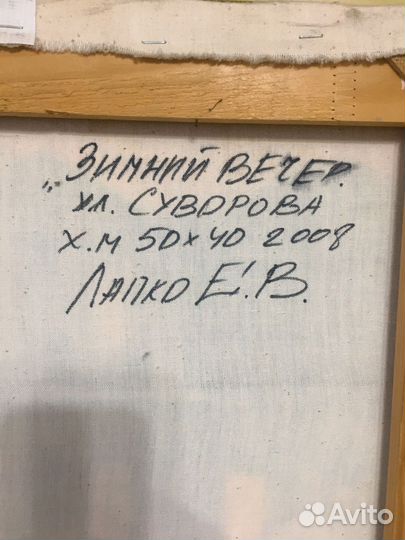 „ЗИМНИЙ ВЕЧЕР.
ул. СУВОРОВА
Х.М 50х40 2008
ЛАПКО Е.В.
Avito